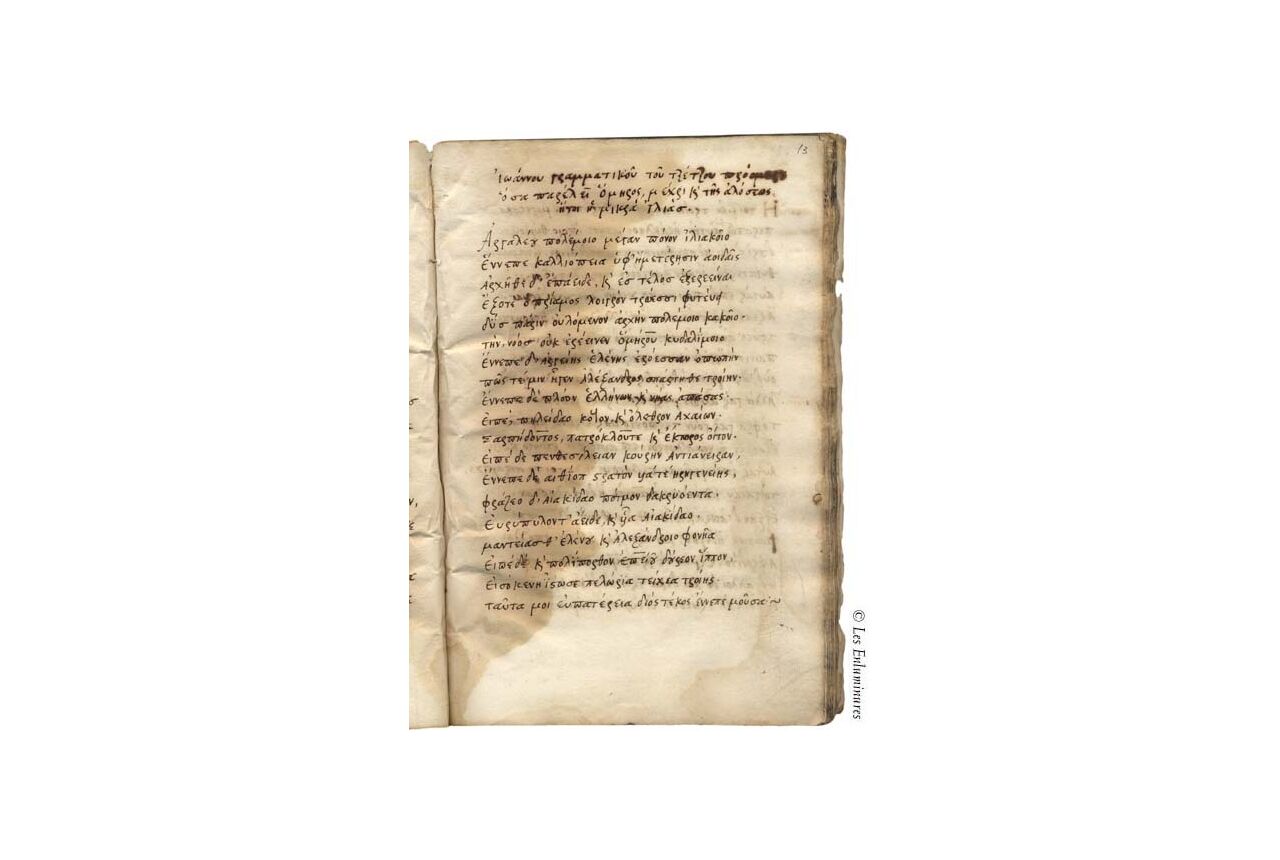 13
Ἰωάννου γραμματικοῦ τοῦ τζέτζου
ὅσα παρέλει Ὅμηρος, μέχρι κ τῆς ἁλόσεως
ἤτοι ἡ μικρὰ ἰλιάς.
Ἀργαλέου πολέμοιο μέγαν πόνον ἰλιακοῖο
Ἔννεπε καλλιόπεια ὑφ' ἡμετέρησιν ἀοιδαῖς
Ἀρχῆθε δ' ἐπάειδε, κ ἐς τέλος ἐξερέεινε
Ἐξότε Πρίαμος λοιγρὸν τρώεσσι φύτευσε
δύσπαριν οὐλόμενον ἀρχὴν πολέμοιο κακοῖο.
τὴν νόος οὐκ ἐρέεινεν Ὁμήρου κυδαλίμοιο
Ἔννεπε δ' Ἀργείης Ἑλένης ἐρόεσσαν ὀπωπὴν
πῶς τέ μιν ἦγεν Ἀλέξανδρος σπάρτηθε τροίην.
Ἔννεπε δὲ πλόον Ἑλλήνων, κ νῆας ἁπάσας
Εἰπέ, πηλείδαο κότον, κ ὄλεθρον Ἀχαιῶν.
Σαρπήδοντος, πατρόκλου τε κ Ἕκτορος οἶτον.
Εἰπὲ δὲ πενθεσίλειαν κούρην Ἀντιάνειραν,
Ἔννεπε δ' αἰθιόπ στρατὸν υἷά τε ἠριγενείης,
φράζεο δ' Αἰακίδαο πότμον δακρυόεντα.
Εὐρύπυλόν τ' ἄειδε, κ υἷα Αἰακίδαο.
μαντείας θ' ἑλένου κ Ἀλεξάνδροιο φονῆα
Εἰπὲ δὲ κ πολίπορθον ἐπειοῦ δούρεον ἵππον,
Εἰσόκεν ἠΐστωσε πελώρια τείχεα τροίης.
ταῦτά μοι εὐπατέρεια διὸς τέκος ἔννεπε μοῦσα
© Les Enluminures